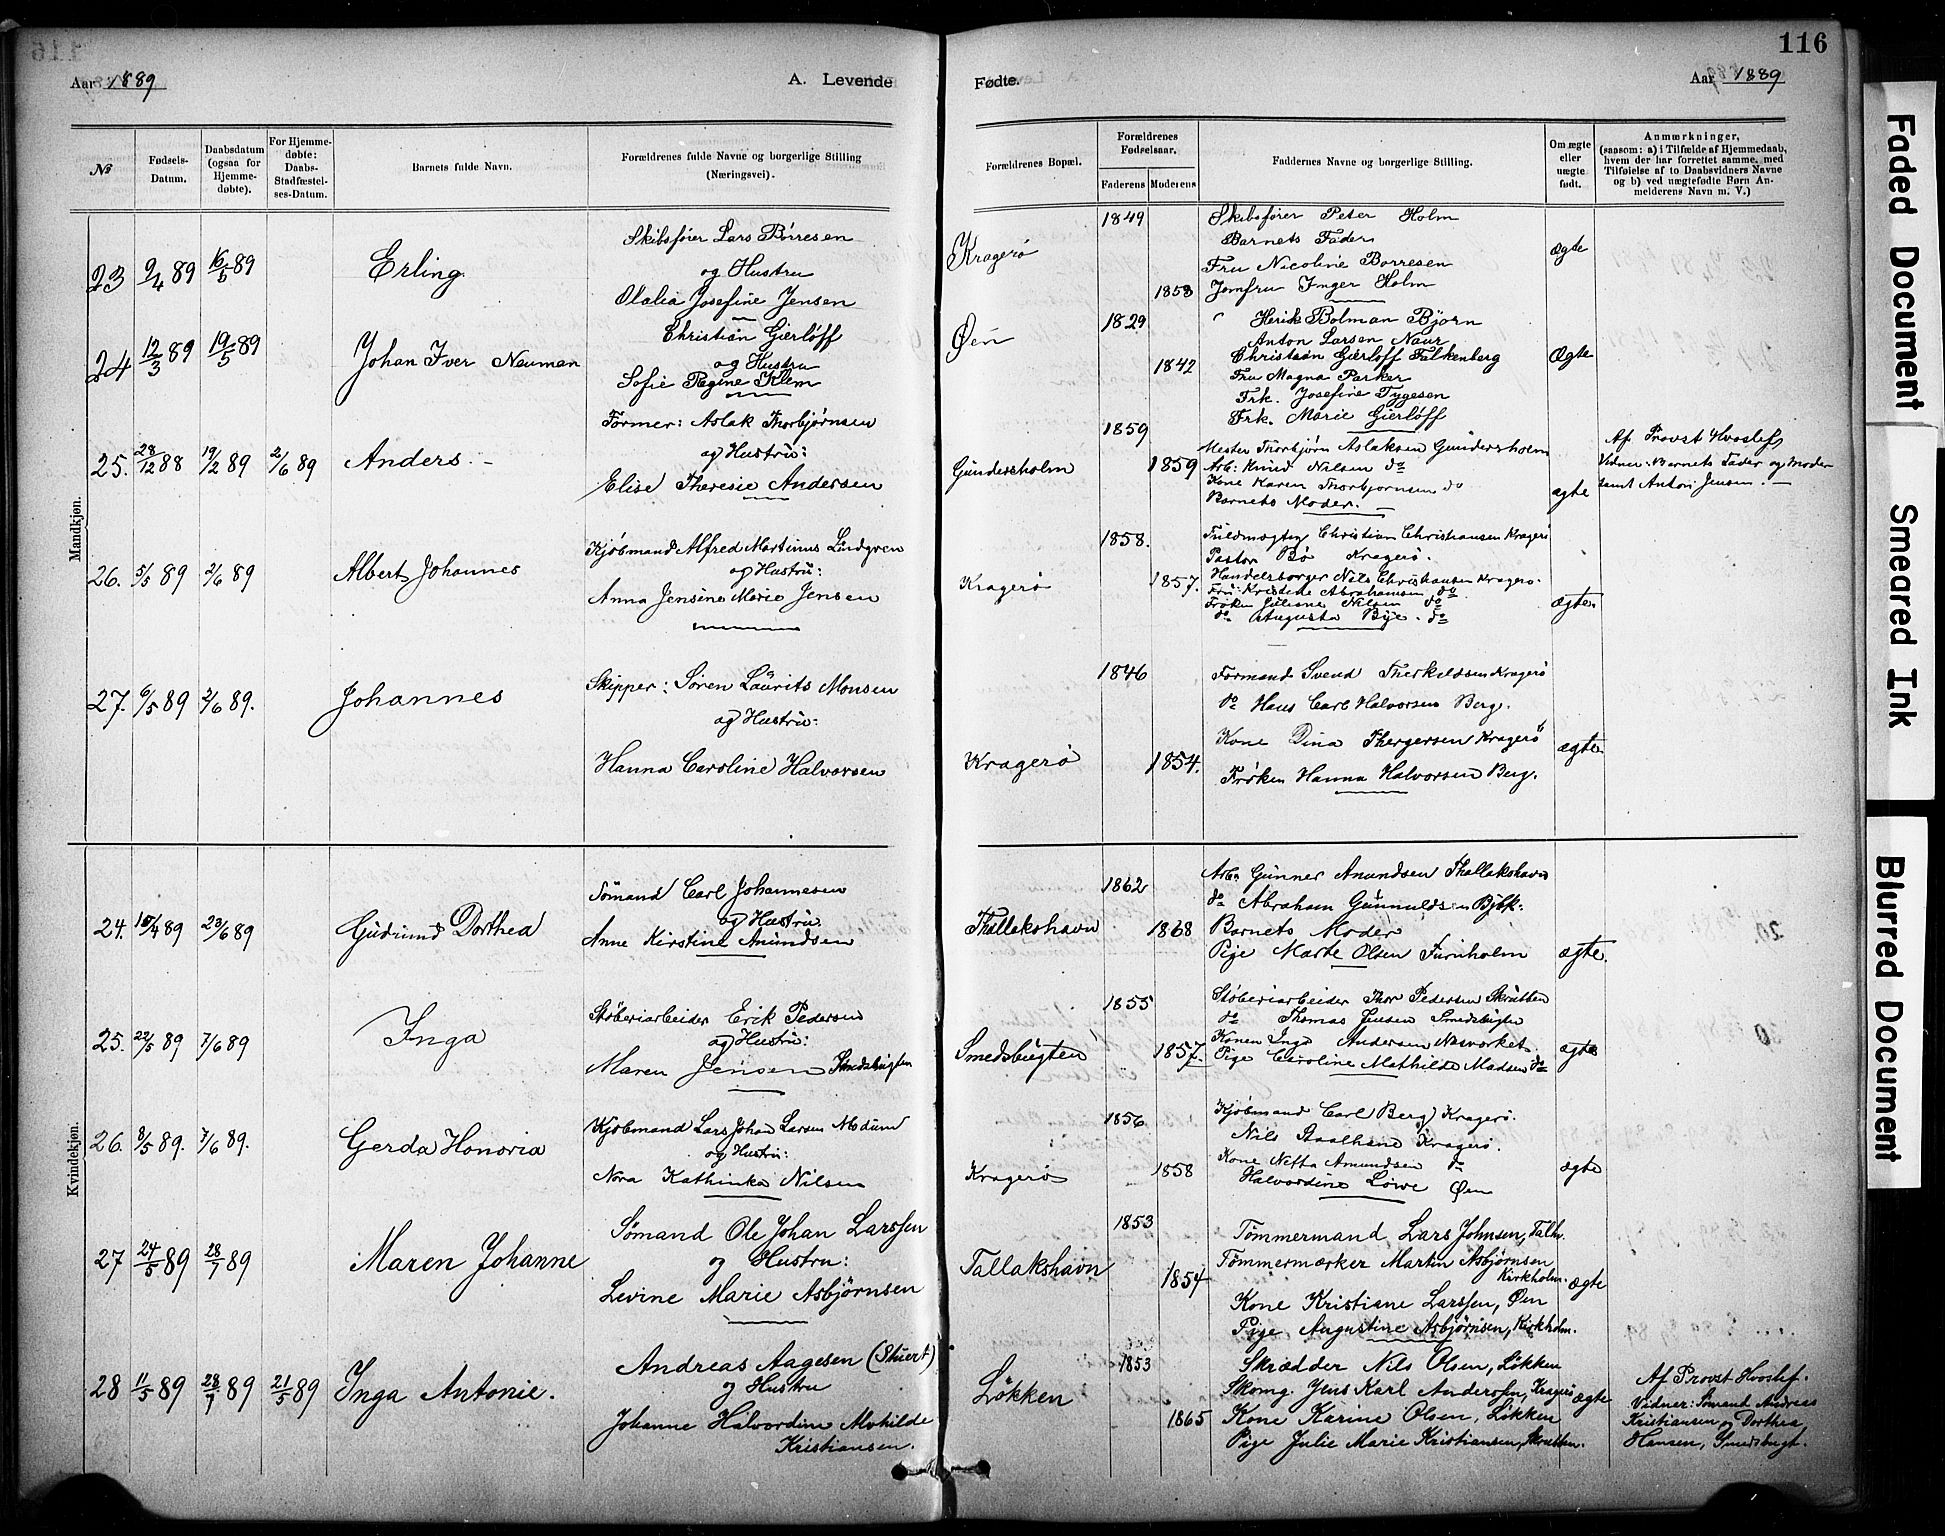 116
Aar 1889
A. Levende
Fødte.
Aar 1889
№
Fødsels-Datum.
Daabsdatum (ogsaa for Hjemme-døbte).
For Hjemme-døbte: Daabs-Stadfæstel-ses-Datum.
Barnets fulde Navn.
Forældrenes fulde Navne og borgerlige Stilling (Næringsvei).
Forældrenes Bopæl.
Forældrenes Fødselsaar.
Faderens
Moderens
Faddernes Navne og borgerlige Stilling.
Om ægte eller uægte født.
Anmærkninger,
(saasom: a) i Tilfælde af Hjemmedaab,
hvem der har forrettet samme, med
Tilføielse af to Daabsvidners Navne
og b) ved uægtefødte Børn An-
melderens Navn m. V.)
Mandkjøn.
23 9/4 89 16/5 89 Erling.
Skibsfører Lars Børresen
og Hustru
Olalia Josefine Jensen
Kragerø
1849
1858
Skibsfører Peter Holm
Barnets Fader
Fru Nicoline Borresen
Jomfru Inger Holm
ægte
24 12/3 89 19/5 89 Johan Iver Neuman
Christian Gierløff
og Hustru
Sofie Regine Klem
Øen
1829
1842
Henrik Bolman Bjorn
Anton Larsen Naur
Christian Gierløff Falkenberg
Fru Magna Parker
Frk. Josefine Tygesen
Frk. Marie Gierløff
Ægte
25. 28/12 88 19/2 89 2/6 89 Anders. -
Former: Aslak Thorbjørnsen
og Hustru:
Elise Theresie Andersen
Gundersholm
1859
1859
Mester Thorbjørn Aslaksen Gundersholm
Arb: Knud Nilsen do
Kone Karen Thorbjørnsen do
Barnets Moder.
ægte
Af Provst Hvoslef,
Vidner: Barnets Fader og Moder
samt Anton Jensen. -
26. 5/5 89 2/6 89 Albert Johannes
Kjøbmand Alfred Martinus Lindgren
og Hustru:
Anna Jensine Marie Jensen
Kragerø
1858.
1857.
Fuldmægtig Christian Christiansen Kragerø
Pastor Bø Kragerø.
Handelsborger Nils Christiansen Kragerø.
Fru Kristine Abrahamsen do
Frøken Juliane Nilsen do
do Augusta Bye. do
Ægte.
27. 6/5 89 2/6 89. Johannes
Skipper: Søren Laurits Monsen
og Hustru:
Hanna Caroline Halvorsen
Kragerø
1846
1854.
Formand Svend Therkeldsen Kragerø
do Hans Carl Halvorsen Berg.
Kone Dina Thergersen Kragerø
Frøken Hanna Halvorsen Berg.
ægte
Kvindekjøn.
24. 10/4 89 23/6 89 Gudrund Dorthea
Sømand Carl Johannesen
og Hustru.
Anne Kirstine Amundsen
Thallakshavn
1862
1868
Arb. Gunner Amundsen Thallakshavn
do Abraham Gunnuldsen Bjbk:
Barnets Moder
Pige Marte Olsen Furuholm
ægte.
25. 22/5 89 7/6 89 Inga
Støberiarbeider Erik Pedersen
og Hustru:
Maren Jensen Smedsbugten
Smedsbugten
1855
1857.
Støberiarbeider Thor Pedersen Skrubben
do Thomas Jensen Smedsbugten
Konen Inga Andersen Næsværket
Pige Caroline Mathilde Madsen do
ægte
26. 8/5 89. 7/6 89. Gerda Honoria
Kjøbmand Lars Johan Larsen Modum
og Hustru:
Nora Kathinka Nilsen
Kragerø
1856
1858
Kjøbmand Carl Berg Kragerø.
Nils Staalhane Kragerø.
Kone Netta Amundsen do
Halvordine Løwe Øen
ægte
27 24/5 89 28/7 89 Maren Johanne
Sømand Ole Johan Larssen
og Hustru:
Levine Marie Asbjørnsen
Tallakshavn
1853
1854
Tømmermand Lars Johnsen, Talh.
Tømmermærker Martin Asbjørnsen
Kirkholm.
Kone Kristiane Larssen, Øen
Pige Augustine Asbjørnsen, Kirkholm.
ægte
28 11/5 89 28/7 89 21/5 89 Inga Antonie.
Andreas Aagesen (Stuert)
og Hustru
Johanne Halvordine Mathilde
Kristiansen.
Løkken
1853
1865
Skrædder Nils Olsen, Løkken
Skomg. Jens Karl Anderssen, Kragerø
Kone Karine Olsen, Løkken
Pige Julie Marie Kristiansen, Skrubben.
ægte
Af Provst Hvoslef.
Vidner: Sømand Andreas
Kristiansen og Dorthea
Hansen, Smedsbugt.
Faded Document
Smeared Ink
Blurred Document